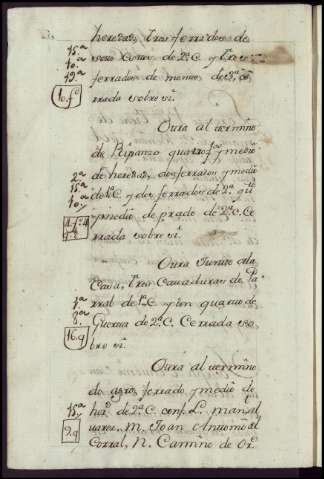 heredad, tres ferrados de
soto Cons. de 2ª C. y tres
ferrados de monte, de 3ª, ce
rrada sobre si.
15.ª
10.ª
19.ª
Otra al termino
de Ripanzo quatro f.s y medio
de heredad, dos ferrados y medio
de 1ª C. y dos ferrados de 2ª
y medio de prado de 2ª C. Ce
rrada sobre si.
2.ª
15.ª
10.ª
Otra Junto ala
Casa, tres Cavaduras de Pa
rral de 1ª C. y un quarto de
Guerta de 2ª C. Cerrada so
bre si.
1.ª
8.ª
16.q
Otra al termino
de agro, ferrado y medio de
her.d de 2ª C. conf. L. man.l Al
varez. M. Joan Antonio al
Corral, N. Camino de Or.e
15.ª
9.q